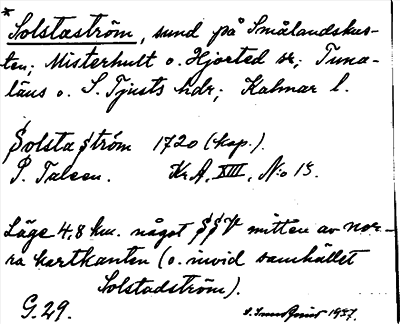 *
Solstaström, sund på Smålandskus-
ten; Misterhult o. Hjorted sr; Tuna-
läns o. S. Tjusts hdr; Kalmar l.
Solsta ström 1720 (kop.).
P. Talsen. Kr.A. XIII, N:o 15.
Läge 4,8 km. något SSV mitten av nor-
ra kartkanten (o. invid samhället
Solstadström).
G.29.
1937.